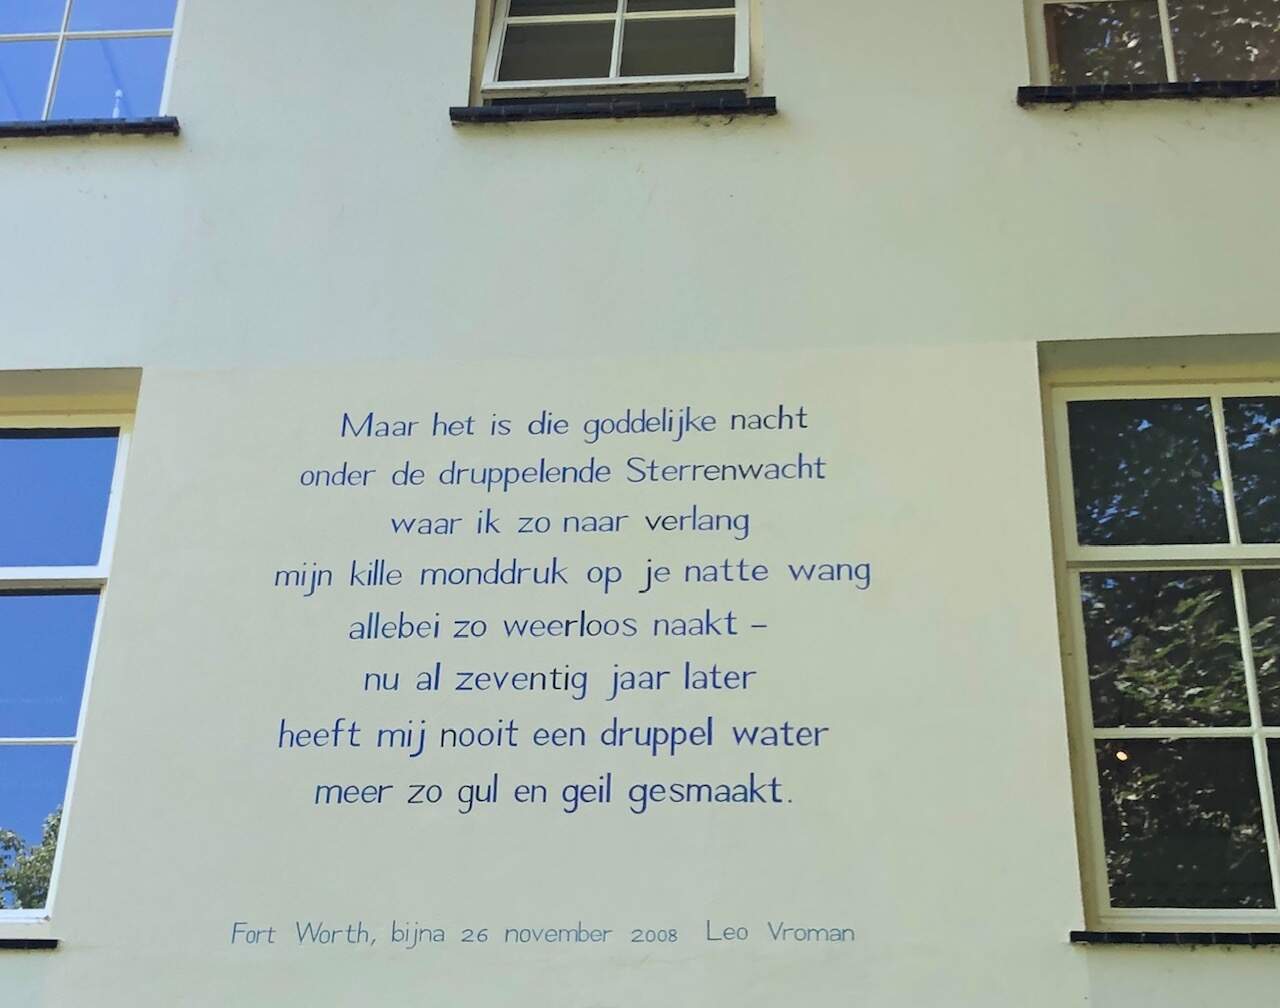 Maar het is die goddelijke nacht
onder de druppelende Sterrenwacht
waar ik zo naar verlang
mijn kille monddruk op je natte wang
allebei zo weerloos naakt –
nu al zeventig jaar later
heeft mij nooit een druppel water
meer zo gul en geil gesmaakt.
Fort Worth, bijna 26 november 2008 Leo Vroman